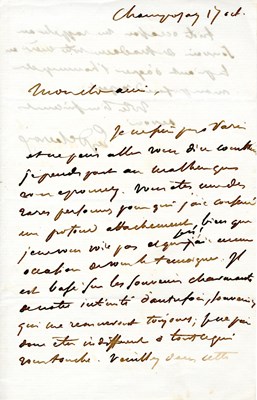 Champrosay 17 oct.
Mon cher ami,
Je ne suis pas à Paris
et ne puis aller vous dire combien
je prends part au malheur que
vous éprouvez. Vous êtes une des
rares personnes pour qui j'aie conservé
un profond attachement, bien que
je ne vous voie pas et que j'aie
occasion de vous le témoigner. Il
est basé sur les souvenirs charmants
de notre intimité d'autrefois, souvenirs
qui me reviennent toujours; je ne puis
donc être indifférent à tout ce qui
vous touche. Veuillez dans cette